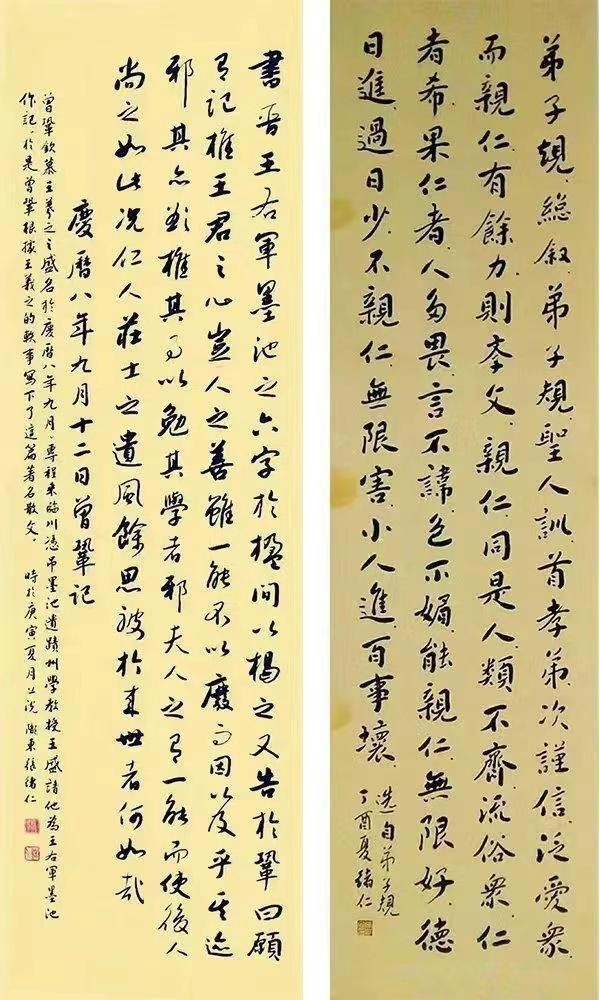 弟子規總敘弟子規聖人訓首孝弟次謹信泛愛衆
而親仁有餘力則学文親仁同是人類不齊流俗衆仁
者希果仁者人多畏言不諱色不媚能親仁無限好德
日進過日少不親仁無限害小人進百事壞
選自弟子規
丁酉夏緒仁
書晋王右軍墨池之六字於楹間以揭之又告於鞏曰願
有記推王君之心豈人之善雖一能不以廢而因以及乎其迹
邪其亦欲推其事以勉其學者邪夫人之有一能而使後人
尚之如此況仁人莊士之遺風餘思被於來世者何如哉
慶曆八年九月十二日曾鞏記
曾鞏欽慕王羲之之盛名於慶曆八年九月、專程來臨川憑吊墨池遺蹟州學教授王盛請他為王右軍墨池
作記、於是曾鞏根據王羲之的軼事寫下了這篇著名散文、 時於庚寅夏月上浣 隴東張緒仁